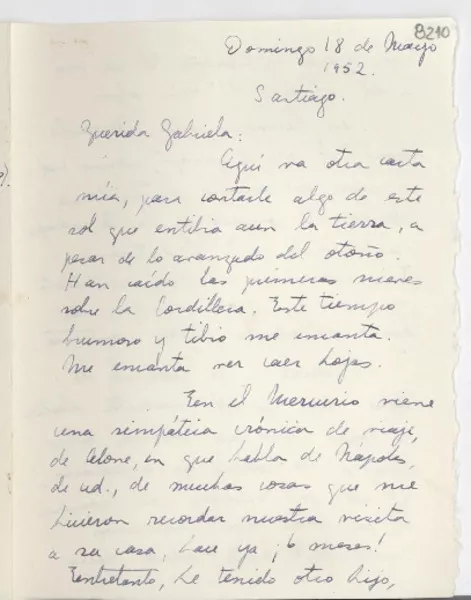 8210
Domingo 18 de Mayo
1952.
Santiago.
Querida Gabriela:
Aquí va otra carta
mía, para contarle algo de este
sol que entibia aun la tierra, a
pesar de lo avanzado del otoño.
Han caído las primeras nieves
sobre la Cordillera. Este tiempo
brumoso y tibio me encanta.
Me encanta ver caer hojas.
En el Mercurio viene
una simpática crónica de viaje,
de Alone, en que habla de Nápoles,
de ud., de muchas cosas que me
hicieron recordar nuestra visita
a su casa, hace ya ¡6 meses!
Entretanto, he tenido otro hijo,